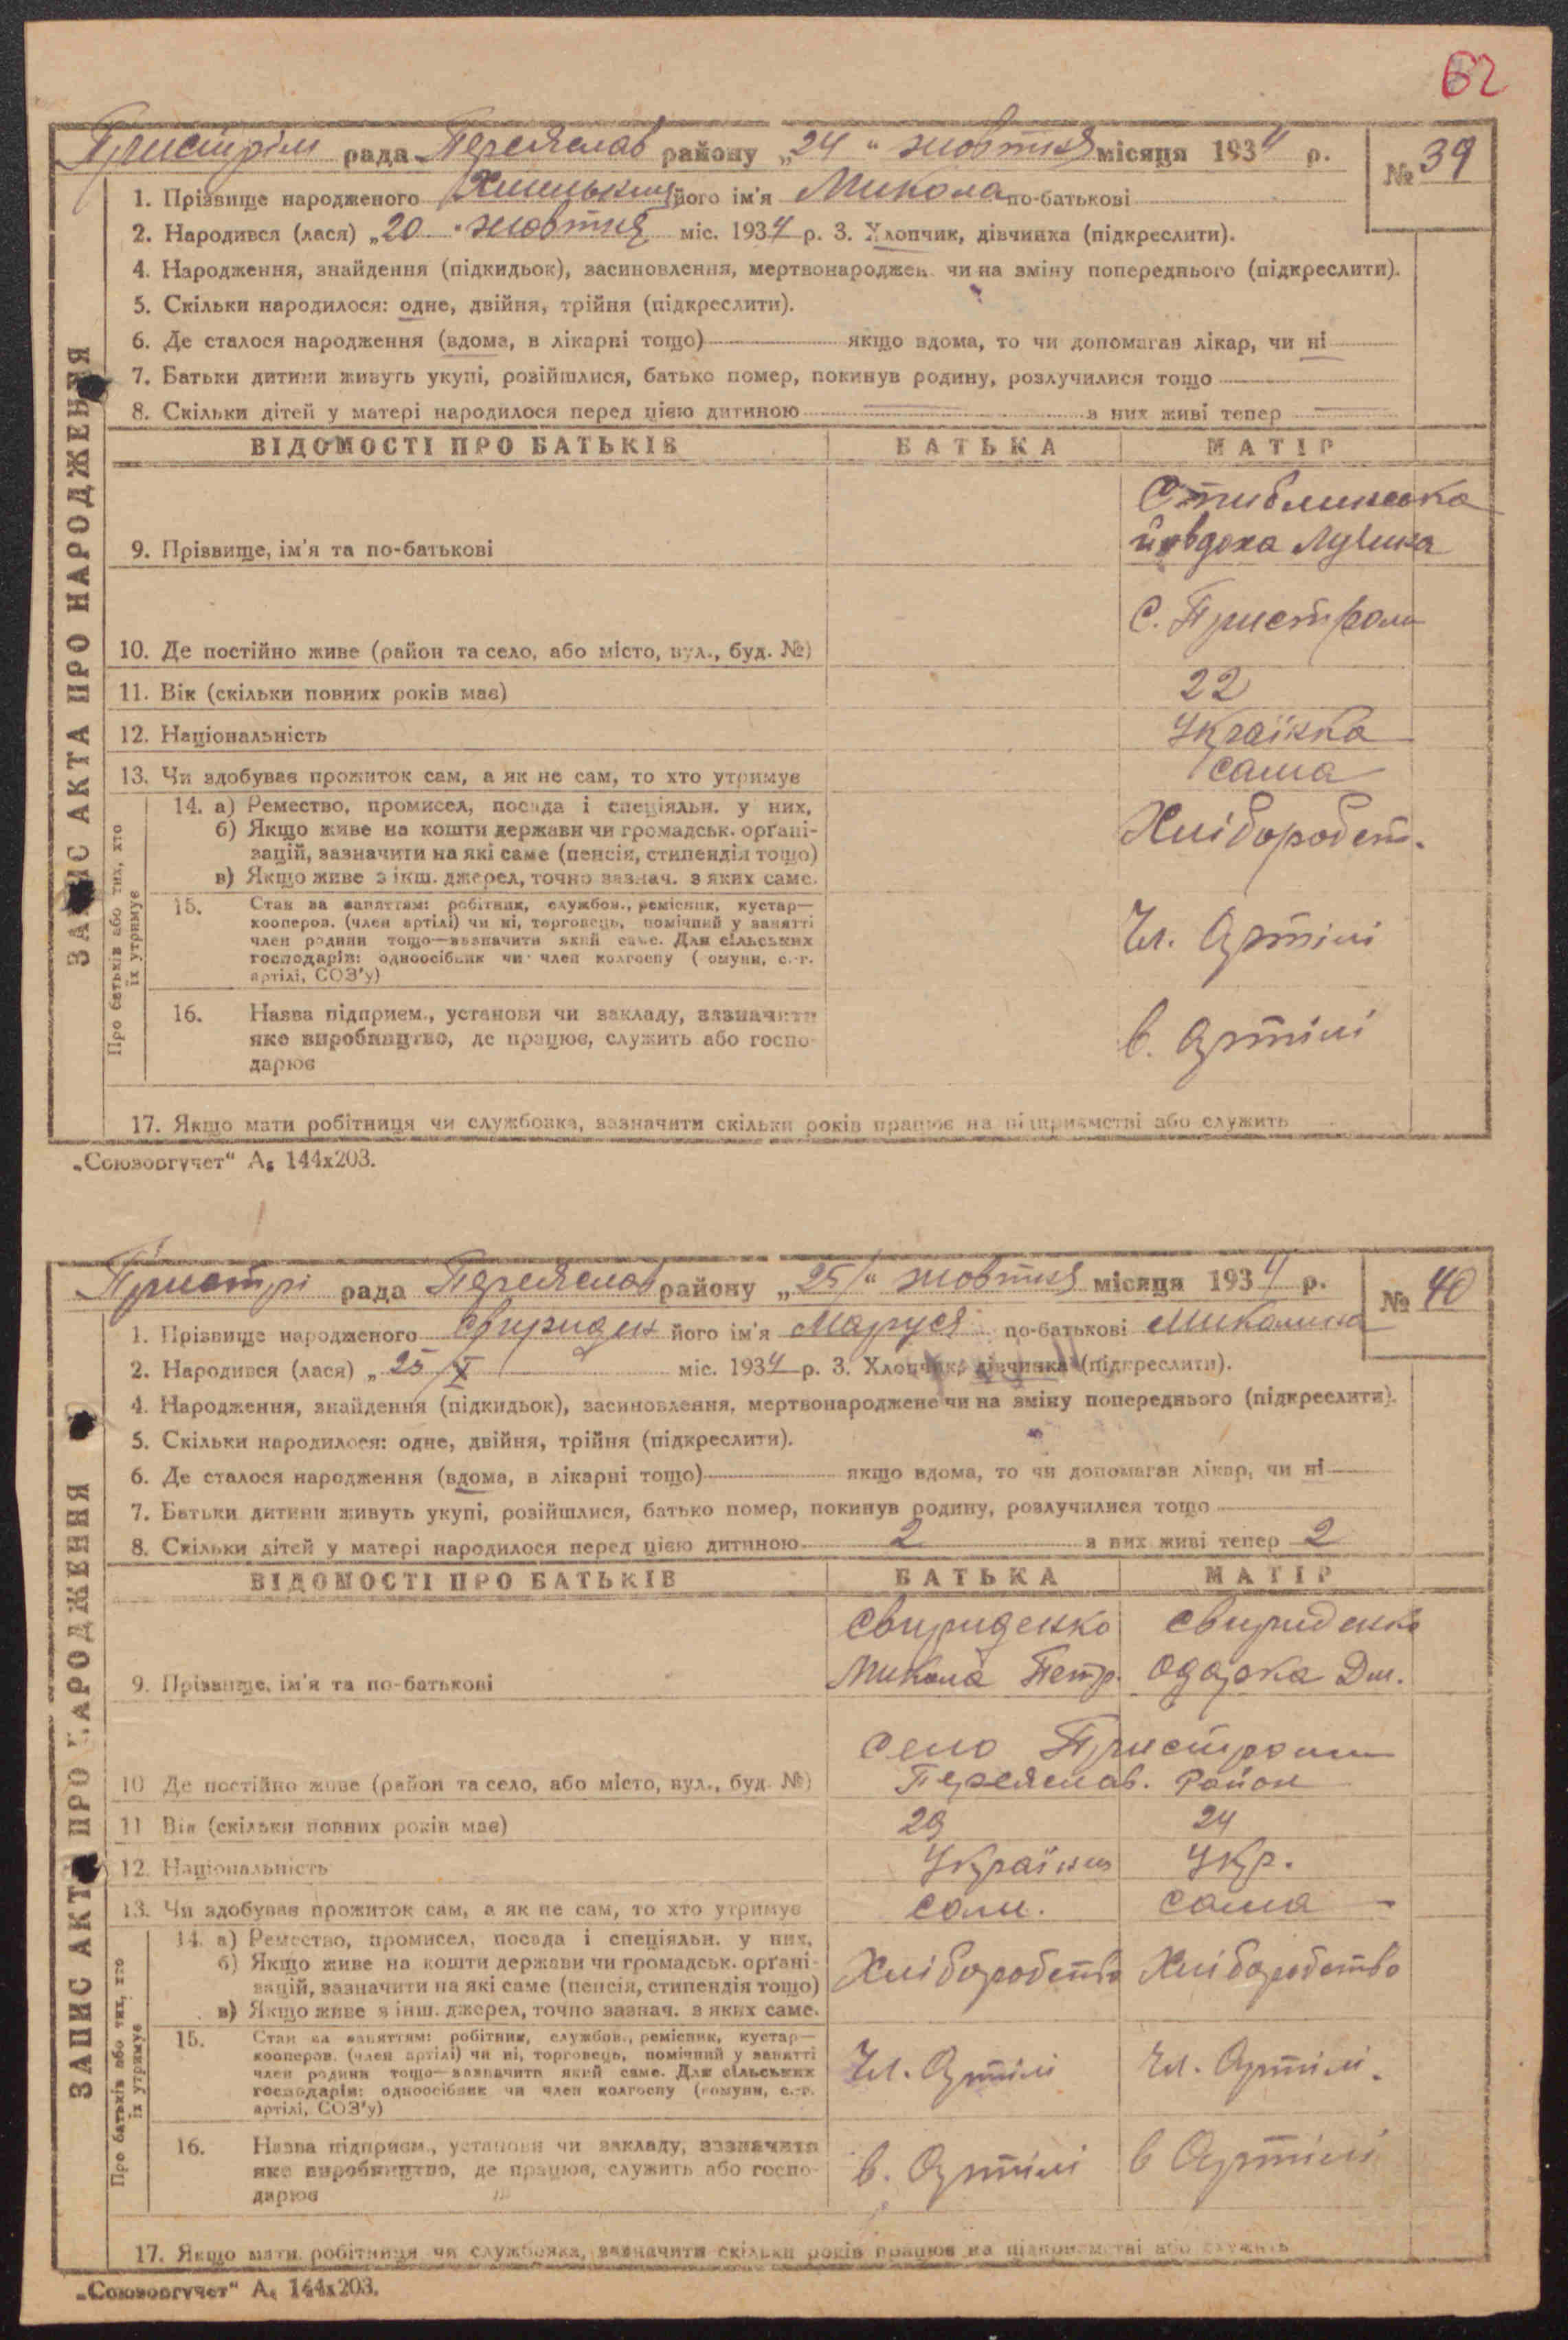 62
Пристром рада Переяслав району „24" жовтня місяця 1934 р. № 39
1. Прізвище народженого його ім'я Микола по-батькові
2. Народився (лася) „20" жовтня міс. 1934 р. 3. Хлопчик, дівчинка (підкреслити).
4. Народження, знайдення (підкидьок), засиновлення, мертвонароджен чи на зміну попереднього (підкреслити).
5. Скільки народилося: одне, двійня, трійня (підкреслити).
6. Де сталося народження (вдома, в лікарні тощо) якщо вдома, то чи допомагав лікар, чи ні
7. Батьки дитини живуть укупі, розійшлися, батько помер, покинув родину, розлучилися тощо
8. Скільки дітей у матері народилося перед цією дитиною з них живі тепер
ВІДОМОСТІ ПРО БАТЬКІВ БАТЬКА МАТІР
9. Прізвище, ім'я та по-батькові
йовдоха
С. Пристроми
10. Де постійно живе (район та село, або місто, вул., буд. №)
11. Вік (скільки повних років має) 22
12. Національність Українка
13. Чи здобуває прожиток сам, а як не сам, то хто утримує сама
14. а) Ремество, промисел, посада і спеціяльн. у них,
б) Якщо живе на кошти держави чи громадськ. орґані- Хліборобст.
зацій, зазначити на які саме (пенсія, стипендія тощо)
в) Якщо живе з інш. джерел, точно зазнач. з яких саме.
15. Стан за заняттям: робітник, службов., ремісник, кустар—
кооперов. (член артілі) чи ні, торговець, помічний у занятті
член родини тощо—зазначити який саме. Для сільських Чл. Артілі
господарів: одноосібник чи член колгоспу (комуни, с.-г.
артілі, СОЗ'у)
16. Назва підприєм., установи чи закладу, зазначити
яке виробництво, де працює, служить або госпо- в. Артілі
дарює
17. Якщо мати робітниця чи службовка, зазначити скільки років працює на підприємстві або служить
ЗАПИС АКТА ПРО НАРОДЖЕННЯ
Про батьків або тих, хто
їх утримує
„Союзоргучет" А₅ 144х203.
Пристрі рада Переяслав району „25" жовтня місяця 1934 р. № 40
1. Прізвище народженого Свириден його ім'я Маруся по-батькові Миколаївна
2. Народився (лася) „25/X міс. 1934 р. 3. Хлопчик, дівчинка (підкреслити).
4. Народження, знайдення (підкидьок), засиновлення, мертвонароджене чи на зміну попереднього (підкреслити).
5. Скільки народилося: одне, двійня, трійня (підкреслити).
6. Де сталося народження (вдома, в лікарні тощо) якщо вдома, то чи допомагав лікар, чи ні
7. Батьки дитини живуть укупі, розійшлися, батько помер, покинув родину, розлучилися тощо
8. Скільки дітей у матері народилося перед цією дитиною 2 з них живі тепер 2
ВІДОМОСТІ ПРО БАТЬКІВ БАТЬКА МАТІР
Свириденко Свириденко
9. Прізвище, ім'я та по-батькові Микола Петр. Одарка Дм.
село Пристроми
10 Де постійно живе (район та село, або місто, вул., буд. №) Переяслав. Район
11 Вік (скільки повних років має) 29 24
12. Національність Українец Укр.
13. Чи здобуває прожиток сам, а як не сам, то хто утримує сам. сама
14. а) Ремество, промисел, посада і спеціяльн. у них,
б) Якщо живе на кошти держави чи громадськ. орґані- Хліборобство Хліборобство
зацій, зазначити на які саме (пенсія, стипендія тощо)
в) Якщо живе з інш. джерел, точно зазнач. з яких саме.
15. Стан за заняттям: робітник, службов., ремісник, кустар—
кооперов. (член артілі) чи ні, торговець, помічний у занятті
член родини тощо—зазначити який саме. Для сільських Чл. Артілі Чл. Артілі.
господарів: одноосібник чи член колгоспу (комуни, с.-г.
артілі, СОЗ'у)
16. Назва підприєм., установи чи закладу, зазначити
яке виробництво, де працює, служить або госпо- в. Артілі в Артілі
дарює
17. Якщо мати робітниця чи службовка, зазначити скільки років працює на підприємстві або служить
ЗАПИС АКТА ПРО НАРОДЖЕННЯ
Про батьків або тих, хто
їх утримує
„Союзоргучет" А₅ 144х203.